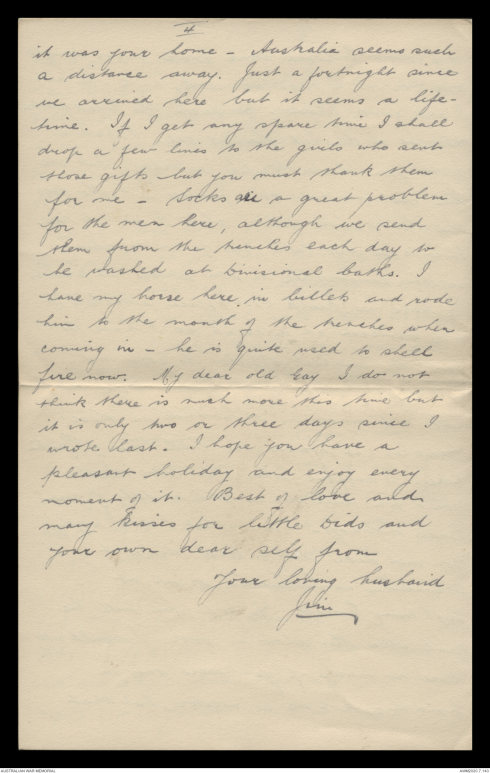 4
it was your home - Australia seems such
a distance away. Just a fortnight since
we arrived here but it seems a life-
time. If I get any spare time I shall
drop a few lines to the girls who sent
those gifts but you must thank them
for me - Socks are a great problem
for the men here, although we send
them from the trenches each day to
be washed at Divisional baths. I
have my horse here, in billets and rode
him to the mouth of the trenches when
coming in - he is quite used to shell
fire now. My dear old Gay I do not
think there is much more this time but
it is only two or three days since I
wrote last. I hope you have a
pleasant holiday and enjoy every
moment of it. Best of love and
many kisses for little Dids and
your own dear self from
Your loving husband
Jim
AUSTRALIAN WAR MEMORIAL